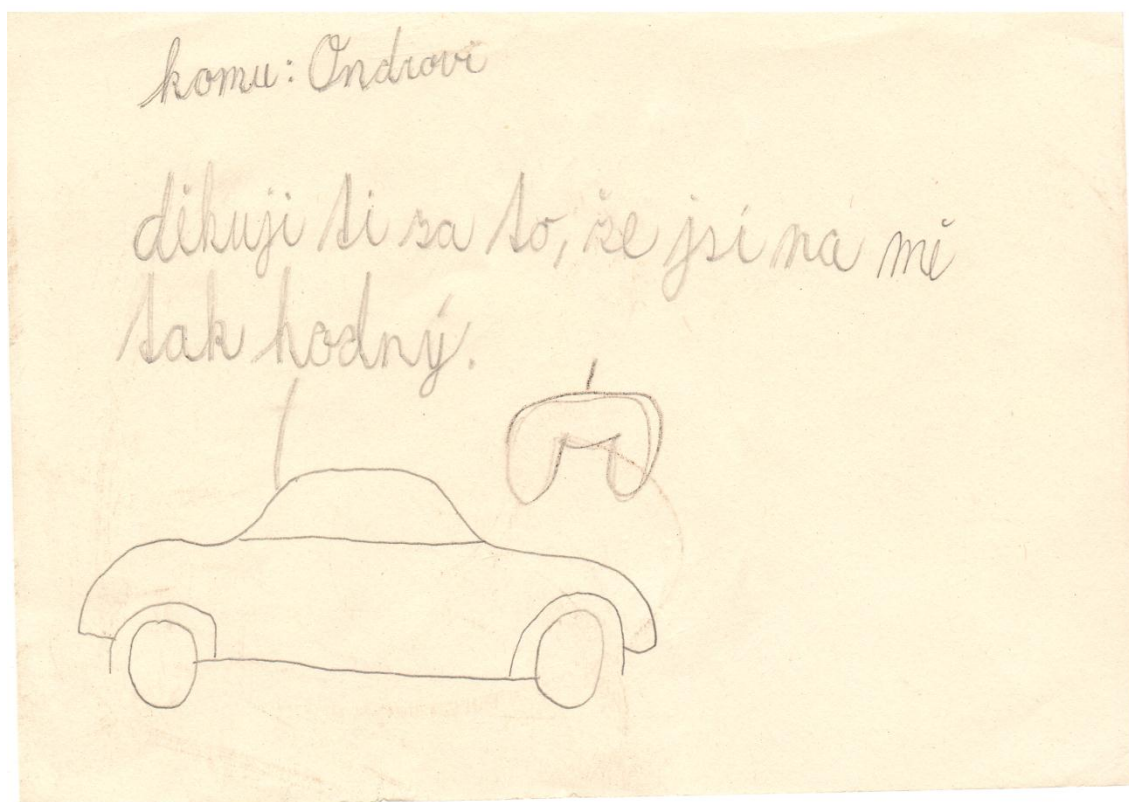 komu: Ondrovi
děkuji ti za to, že jsi na mě
tak hodný.